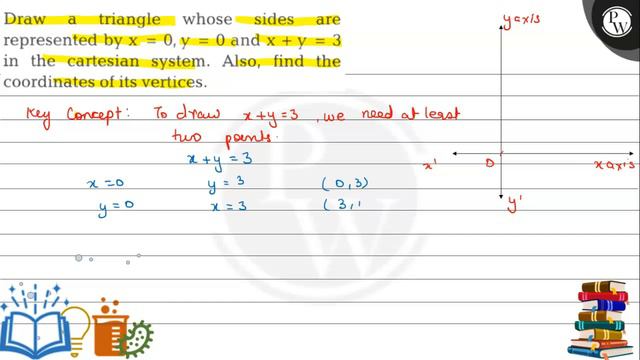 Draw a triangle whose sides are
represented by x = 0, y = 0 and x + y = 3
in the cartesian system. Also, find the
coordinates of its vertices.
Key Concept: To draw x+y=3, we need at least
two points.
x+y=3
x=0 y=3 (0,3)
y=0 x=3 (3,
y axis
x' 0 x axis
y'
PW